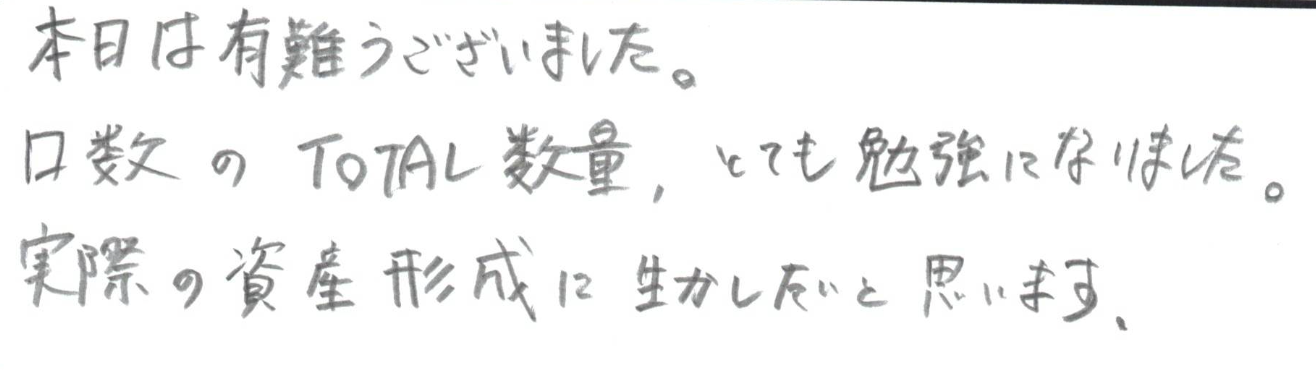 本日は有難うございました。
口数の TOTAL数量, とても勉強になりました。
実際の資産形成に生かしたいと思います、